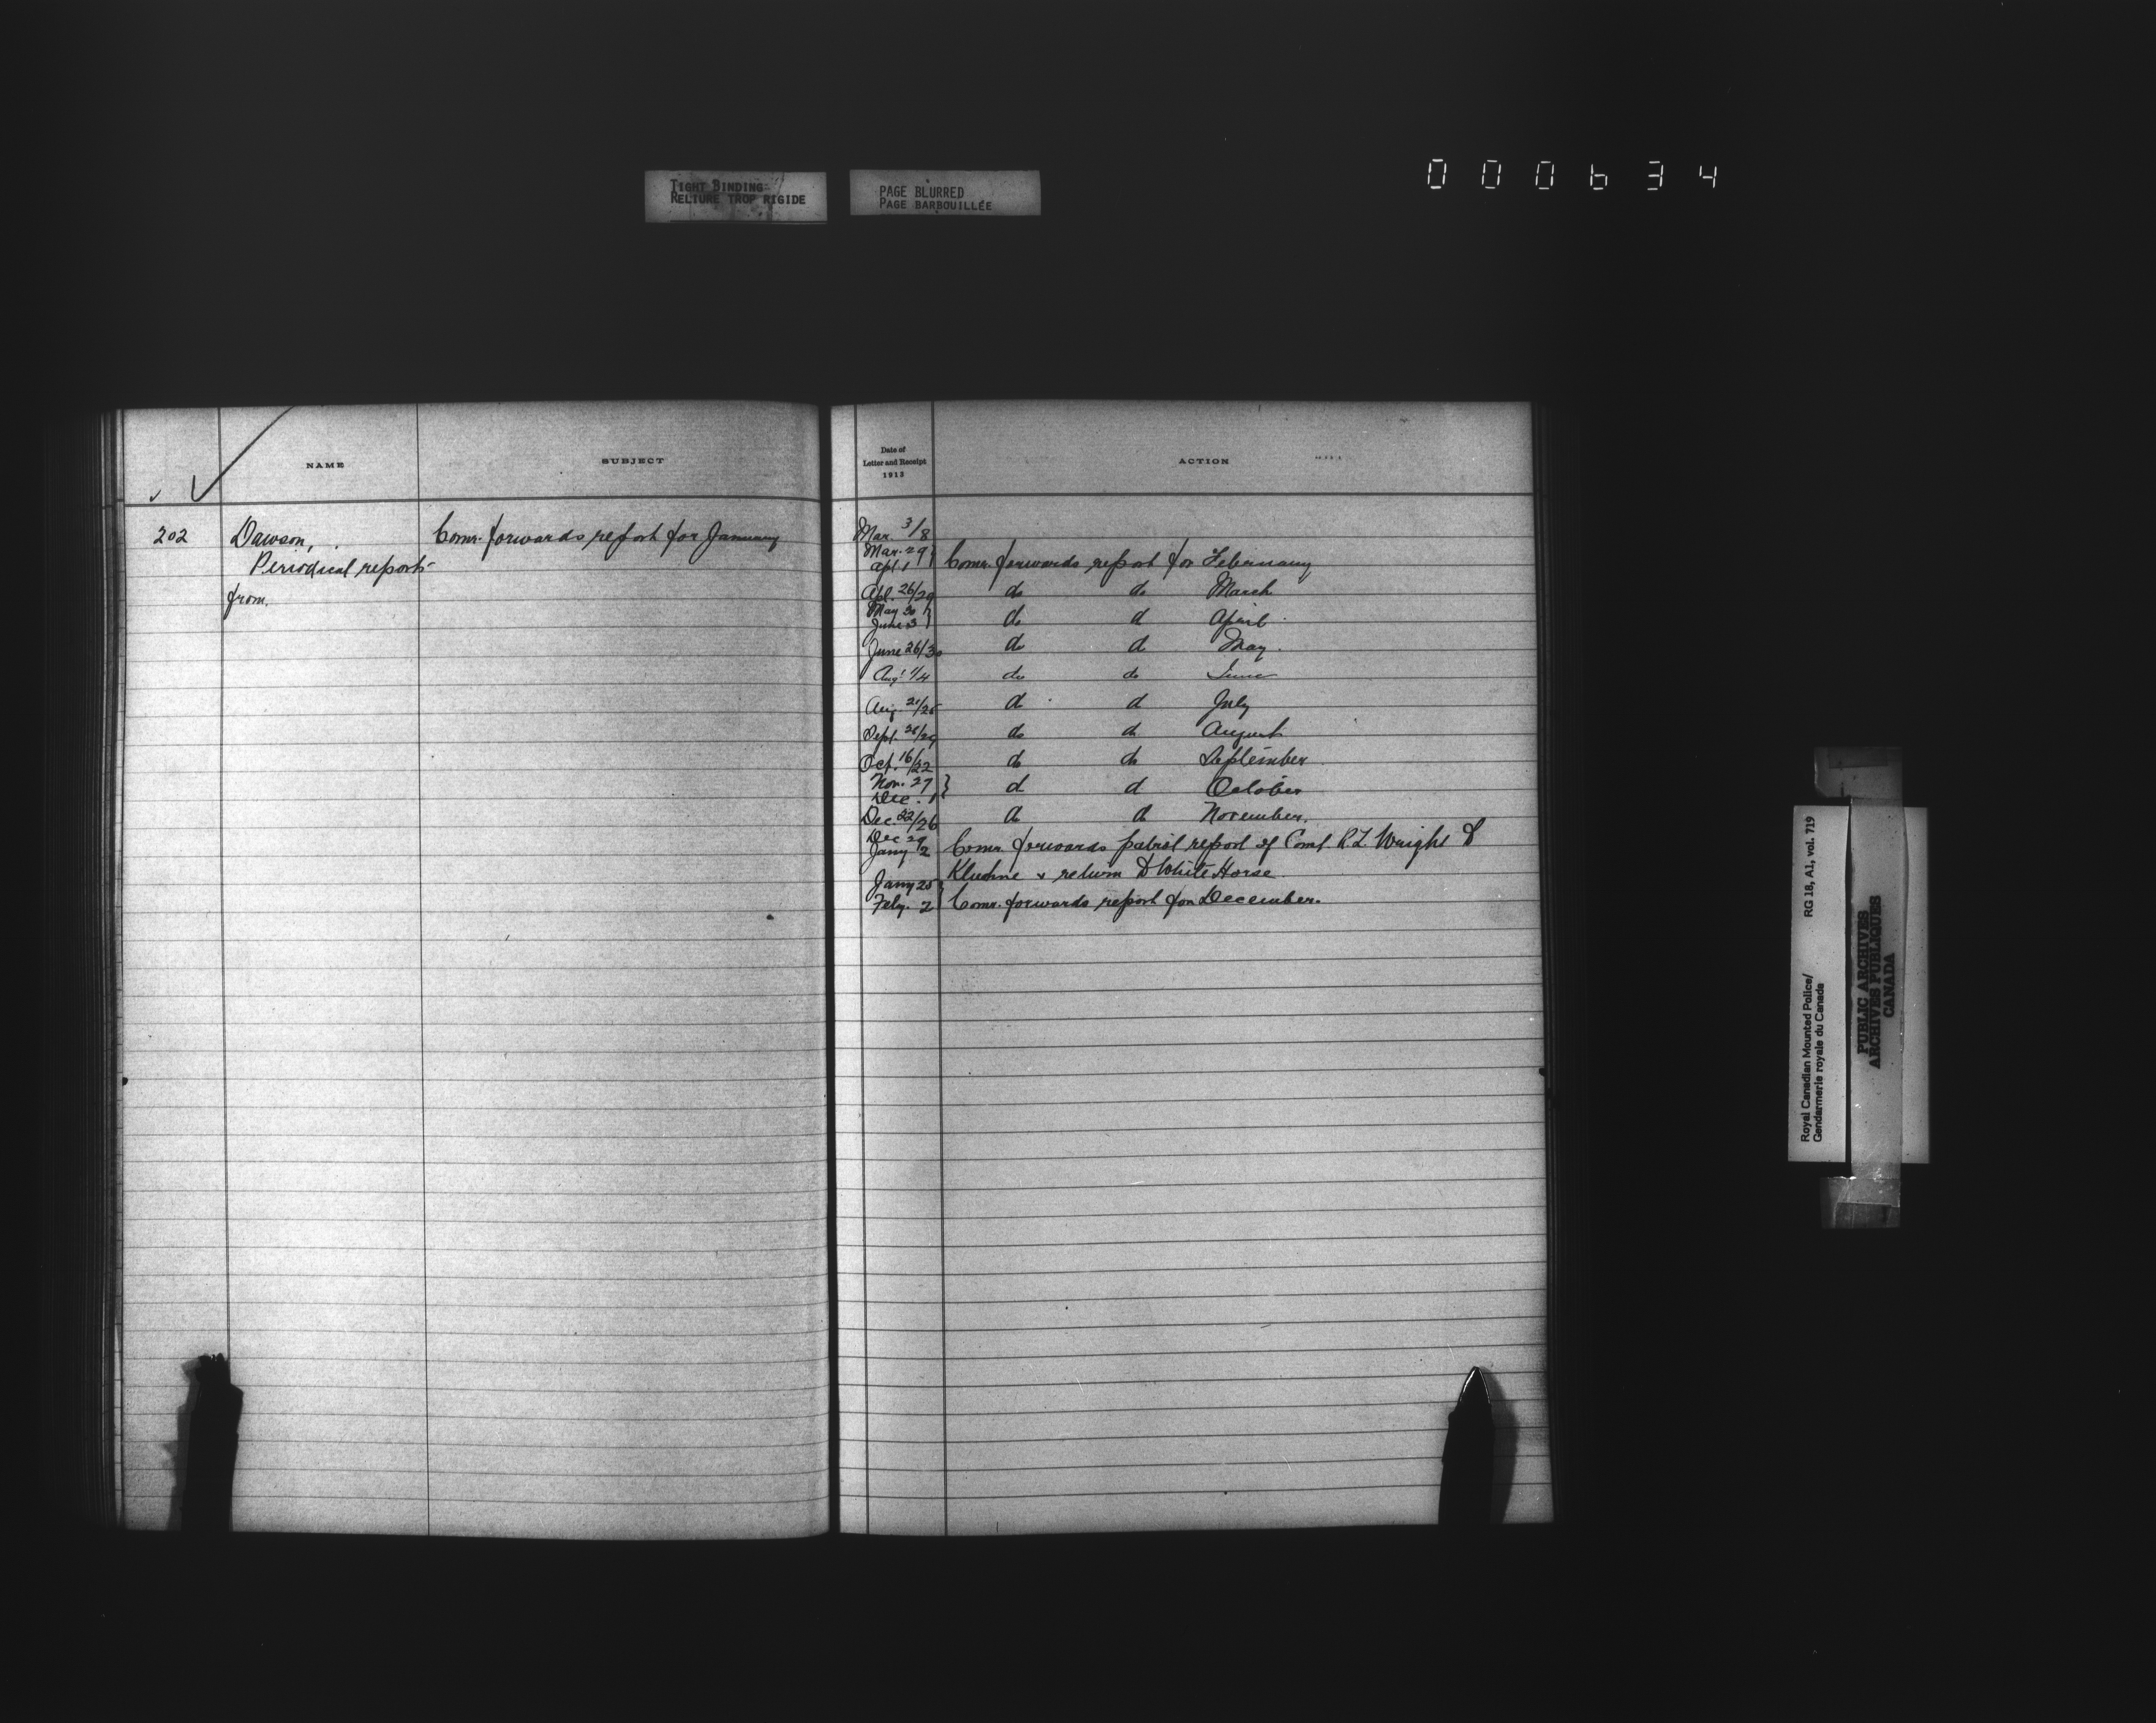 TIGHT BINDING
RELIURE TROP RIGIDE
PAGE BLURRED
PAGE BARBOUILLÉE
000634
NAME
SUBJECT
202
Dawson,
Comr. forwards report for January
Periodical reports
from.
Date of
Letter and Receipt
1913
ACTION
Mar. 3/8
Mar. 29
Apl. 1
Comr. forwards report for February
Apl. 26/29 do do March
May 30
June 3
do do April
June 26/30 do do May.
Aug 1/4 do do June
Aug. 21/25 do do July
Sept. 26/29 do do August
Oct. 16/22 do do September
Nov. 27
Dec. 1
do do October
Dec 22/26 do do November.
Dec 29
Jany 2
Comr. forwards patrol report of Const R.L. Wright to
Kluhne & return to White Horse
Jany 25
Feby. 2
Comr. forwards report for December.
Royal Canadian Mounted Police/
Gendarmerie royale du Canada
RG 18, A1, vol. 719
PUBLIC ARCHIVES
ARCHIVES PUBLIQUES
CANADA